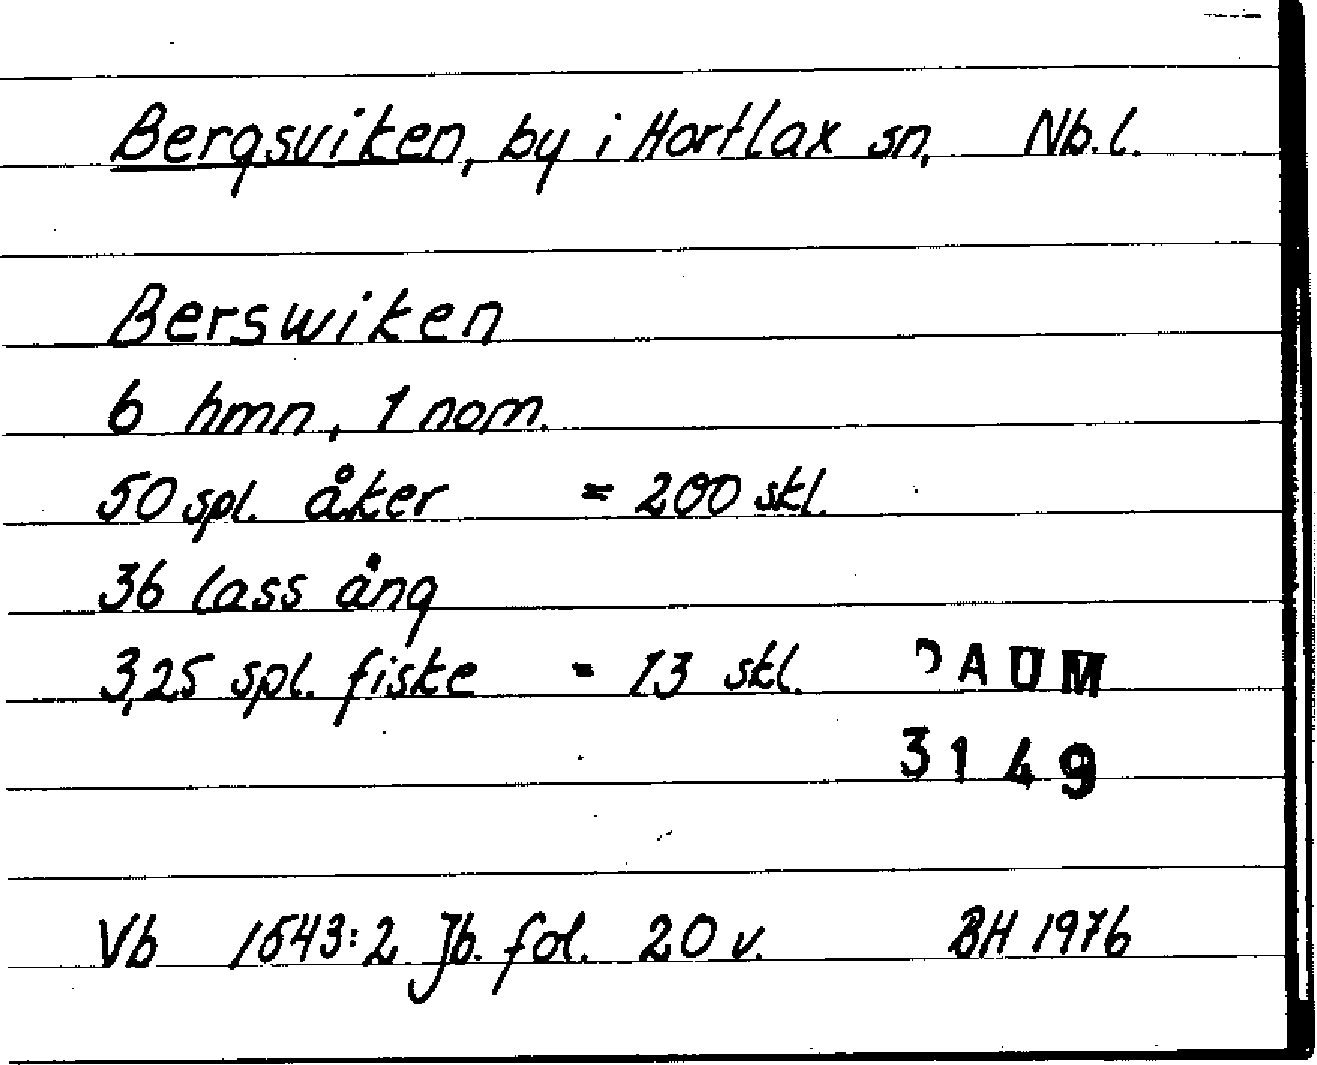 Bergsviken, by i Hortlax sn. Nb.l.
Berswiken
6 hmn, 1 nom.
50 spl. åker = 200 skl.
36 lass äng
3,25 spl. fiske = 13 skl.
DAUM
3149
Vb 1543:2 Jb. fol. 20 v. BH 1976